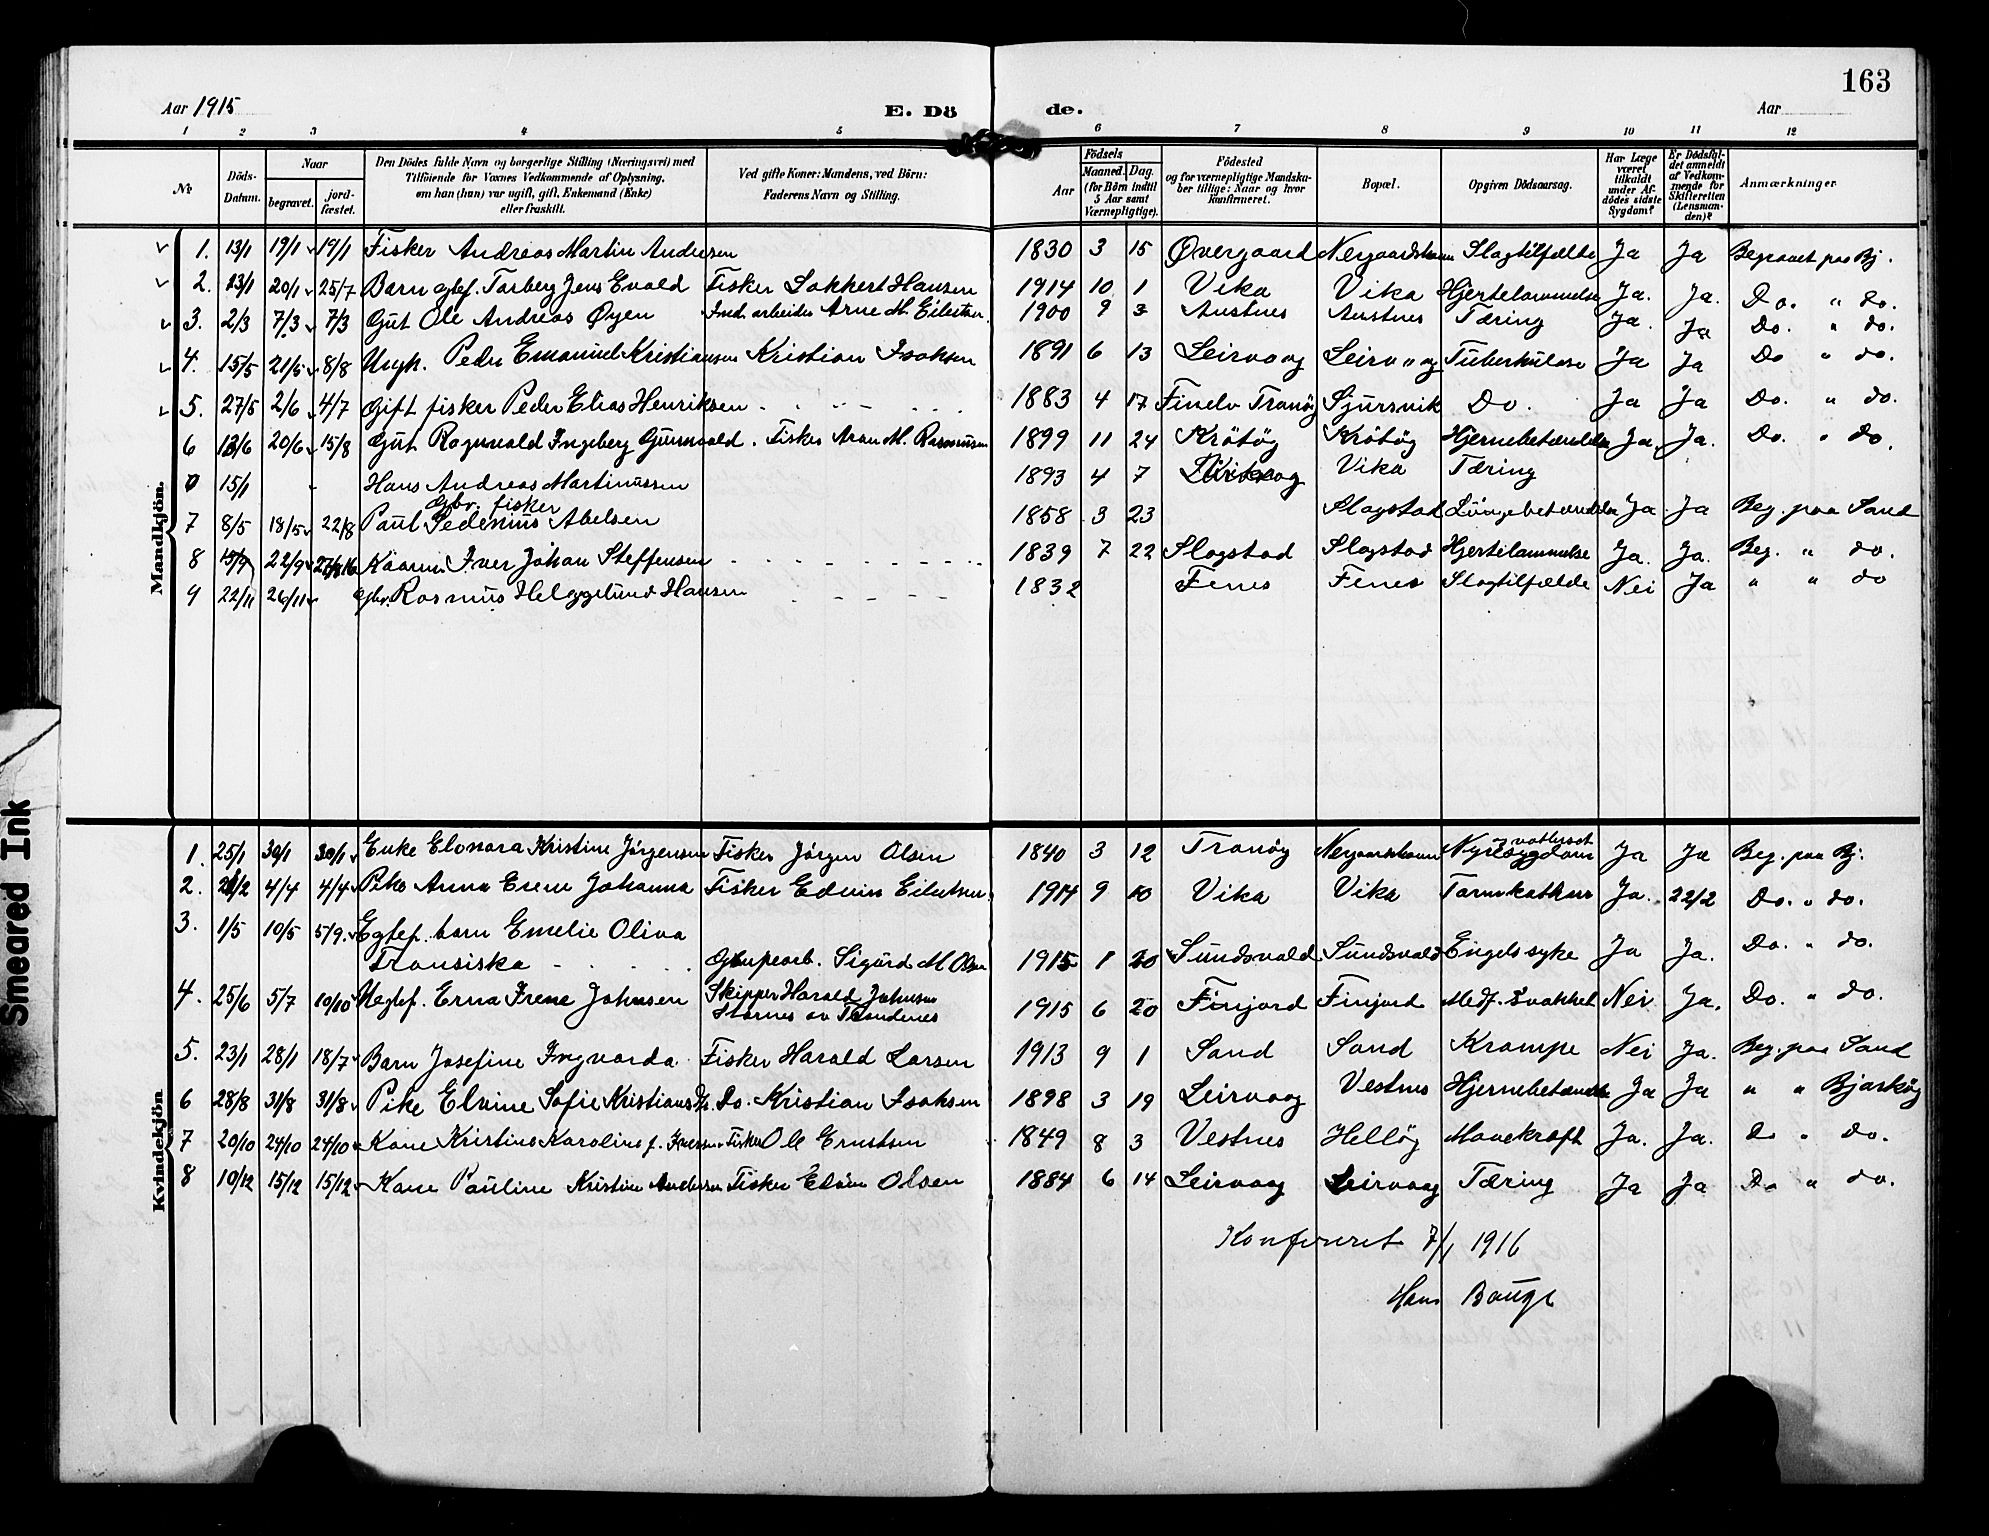 163
Aar 1915 E. Dö de. Aar
1 2 3 4 5 6 7 8 9 10 11 12
No
Döds-Datum.
Naar
begravet.
jord-fæstet.
Den Dödes fulde Navn og borgerlige Stilling (Næringsvei) med
Tilföiende for Voxnes Vedkommende af Oplysning,
om han (hun) var ugift, gift, Enkemand (Enke)
eller fraskilt.
Ved gifte Koner: Mandens, ved Börn:
Faderens Navn og Stilling.
Födsels
Aar
Maaned. Dag.
(for Börn indtil
5 Aar samt
Værnepligtige).
Födested
og for værnepligtige Mandska-
ber tillige: Naar og hvor
konfirmeret.
Bopæl.
Opgiven Dödsaarsag.
Har Læge
været
tilkaldt
under Af-
dödes sidste
Sygdom?
Er Dödsfal-
det anmeldt
af Vedkom-
mende for
Skifteretten
(Lensman-
den)?
Anmærkninger
Mandkjön.
1. 13/1 19/1 19/1 Fisker Andreas Martin Andersen 1830 3 15 Øvergaard Slagtilfælde Ja Ja Begravet paa Bj.
2. 13/1 20/1 25/7 Barn egtef. Torberg Jens Evald Fisker Hansen 1914 10 1 Vika Vika Hjertelammelse Ja. Ja. Do. " do.
3. 2/3 7/3 7/3 Gut Ole Andreas Øyen Ind. arbeider Arne M. 1900 9 3 Austnes Austnes Tæring Ja. Ja Do. " do.
4. 15/5 21/5 8/8 Ungk. Peder Emanuel Kristiansen Kristian Isaksen 1891 6 13 Leirvaag Leirvaag Tuberkulose Ja Ja Do " do.
5. 27/5 2/6 4/7 Gift fisker Peder Elias Henriksen 1883 4 17 Tranöy Sjursvik Do. Ja Ja Do. " do.
6 13/6 20/6 15/8 Gut Ragnvald Ingeberg Gunvald. Fisker Aron M. Rasmussen 1899 11 24 Krötöy Krötöy Hjernebetændelse Ja. Ja. Do. " do.
0 15/1 Hans Andreas Martinussen 1893 4 7 Vika Tæring
Gbr. fisker
7 8/5 18/5 22/8 Paul Pedenius Abelsen 1858 3 23 Slagstad Lungebetændelse Ja Ja Beg. paa Sand
8 22/9 Iver Johan Steffensen 1839 7 22 Slagstad Slagstad Hjertelammelse Ja. Ja. Beg. " do.
9 22/11 26/11 Gbr. Rasmus Hansen 1832 Fenes Fenes Slagtilfælde Nei Ja " " do
Kvindekjön
1. 25/1 30/1 30/1 Enke Elonora Kristine Jørgensen Fisker Jørgen Olsen 1840 3 12 Tranöy Nyresygdom Ja Ja Beg. paa Bj.
2. 4/4 4/4 Pike Anna Johanna Fisker Edvin Eilertsen 1914 9 10 Vika Vika Tarmkathar Ja. 22/2 Do. " do.
3. 1/5 10/5 5/9. Egtef. barn Emelie Oliva
Fransiska Sigurd M Olsen 1915 1 20 Sundsvald Sundsvald Engelssyke Ja Ja. Do. " do.
4. 25/6 5/7 10/10 Uegtef. Erna Irene Johnsen Skipper Harald Johnsen 1915 6 20 Finjord Finjord Medf. svakhet Nei Ja. Do. " do.
Stornes av Trondenes
5. 23/1 28/1 18/7 Barn Josefine Ingvarda Fisker Harald Larsen 1913 9 1 Sand Sand Krampe Nei Ja. Beg. paa Sand
6 28/8 31/8 31/8 Pike Elvine Sofie Kristiansd/r. Do. Kristian Isaksen 1898 3 19 Leirvaag Vestnes Hjernebetændelse Ja Ja " " Bjarköy
7 20/10 24/10 24/10 Kone Kristine Karoline f. Iversen Fisker Ole Erntsen 1849 8 3 Vestnes Hellöy Mavekræft Ja. Ja. Do " do.
8 10/12 15/12 15/12 Kone Pauline Kristine Andersen Fisker Edvin Olsen 1884 6 14 Leirvaag Leirvaag Tæring Ja Ja Do " do.
Konfereret 7/1 1916
Hans Bauge
Smeared Ink